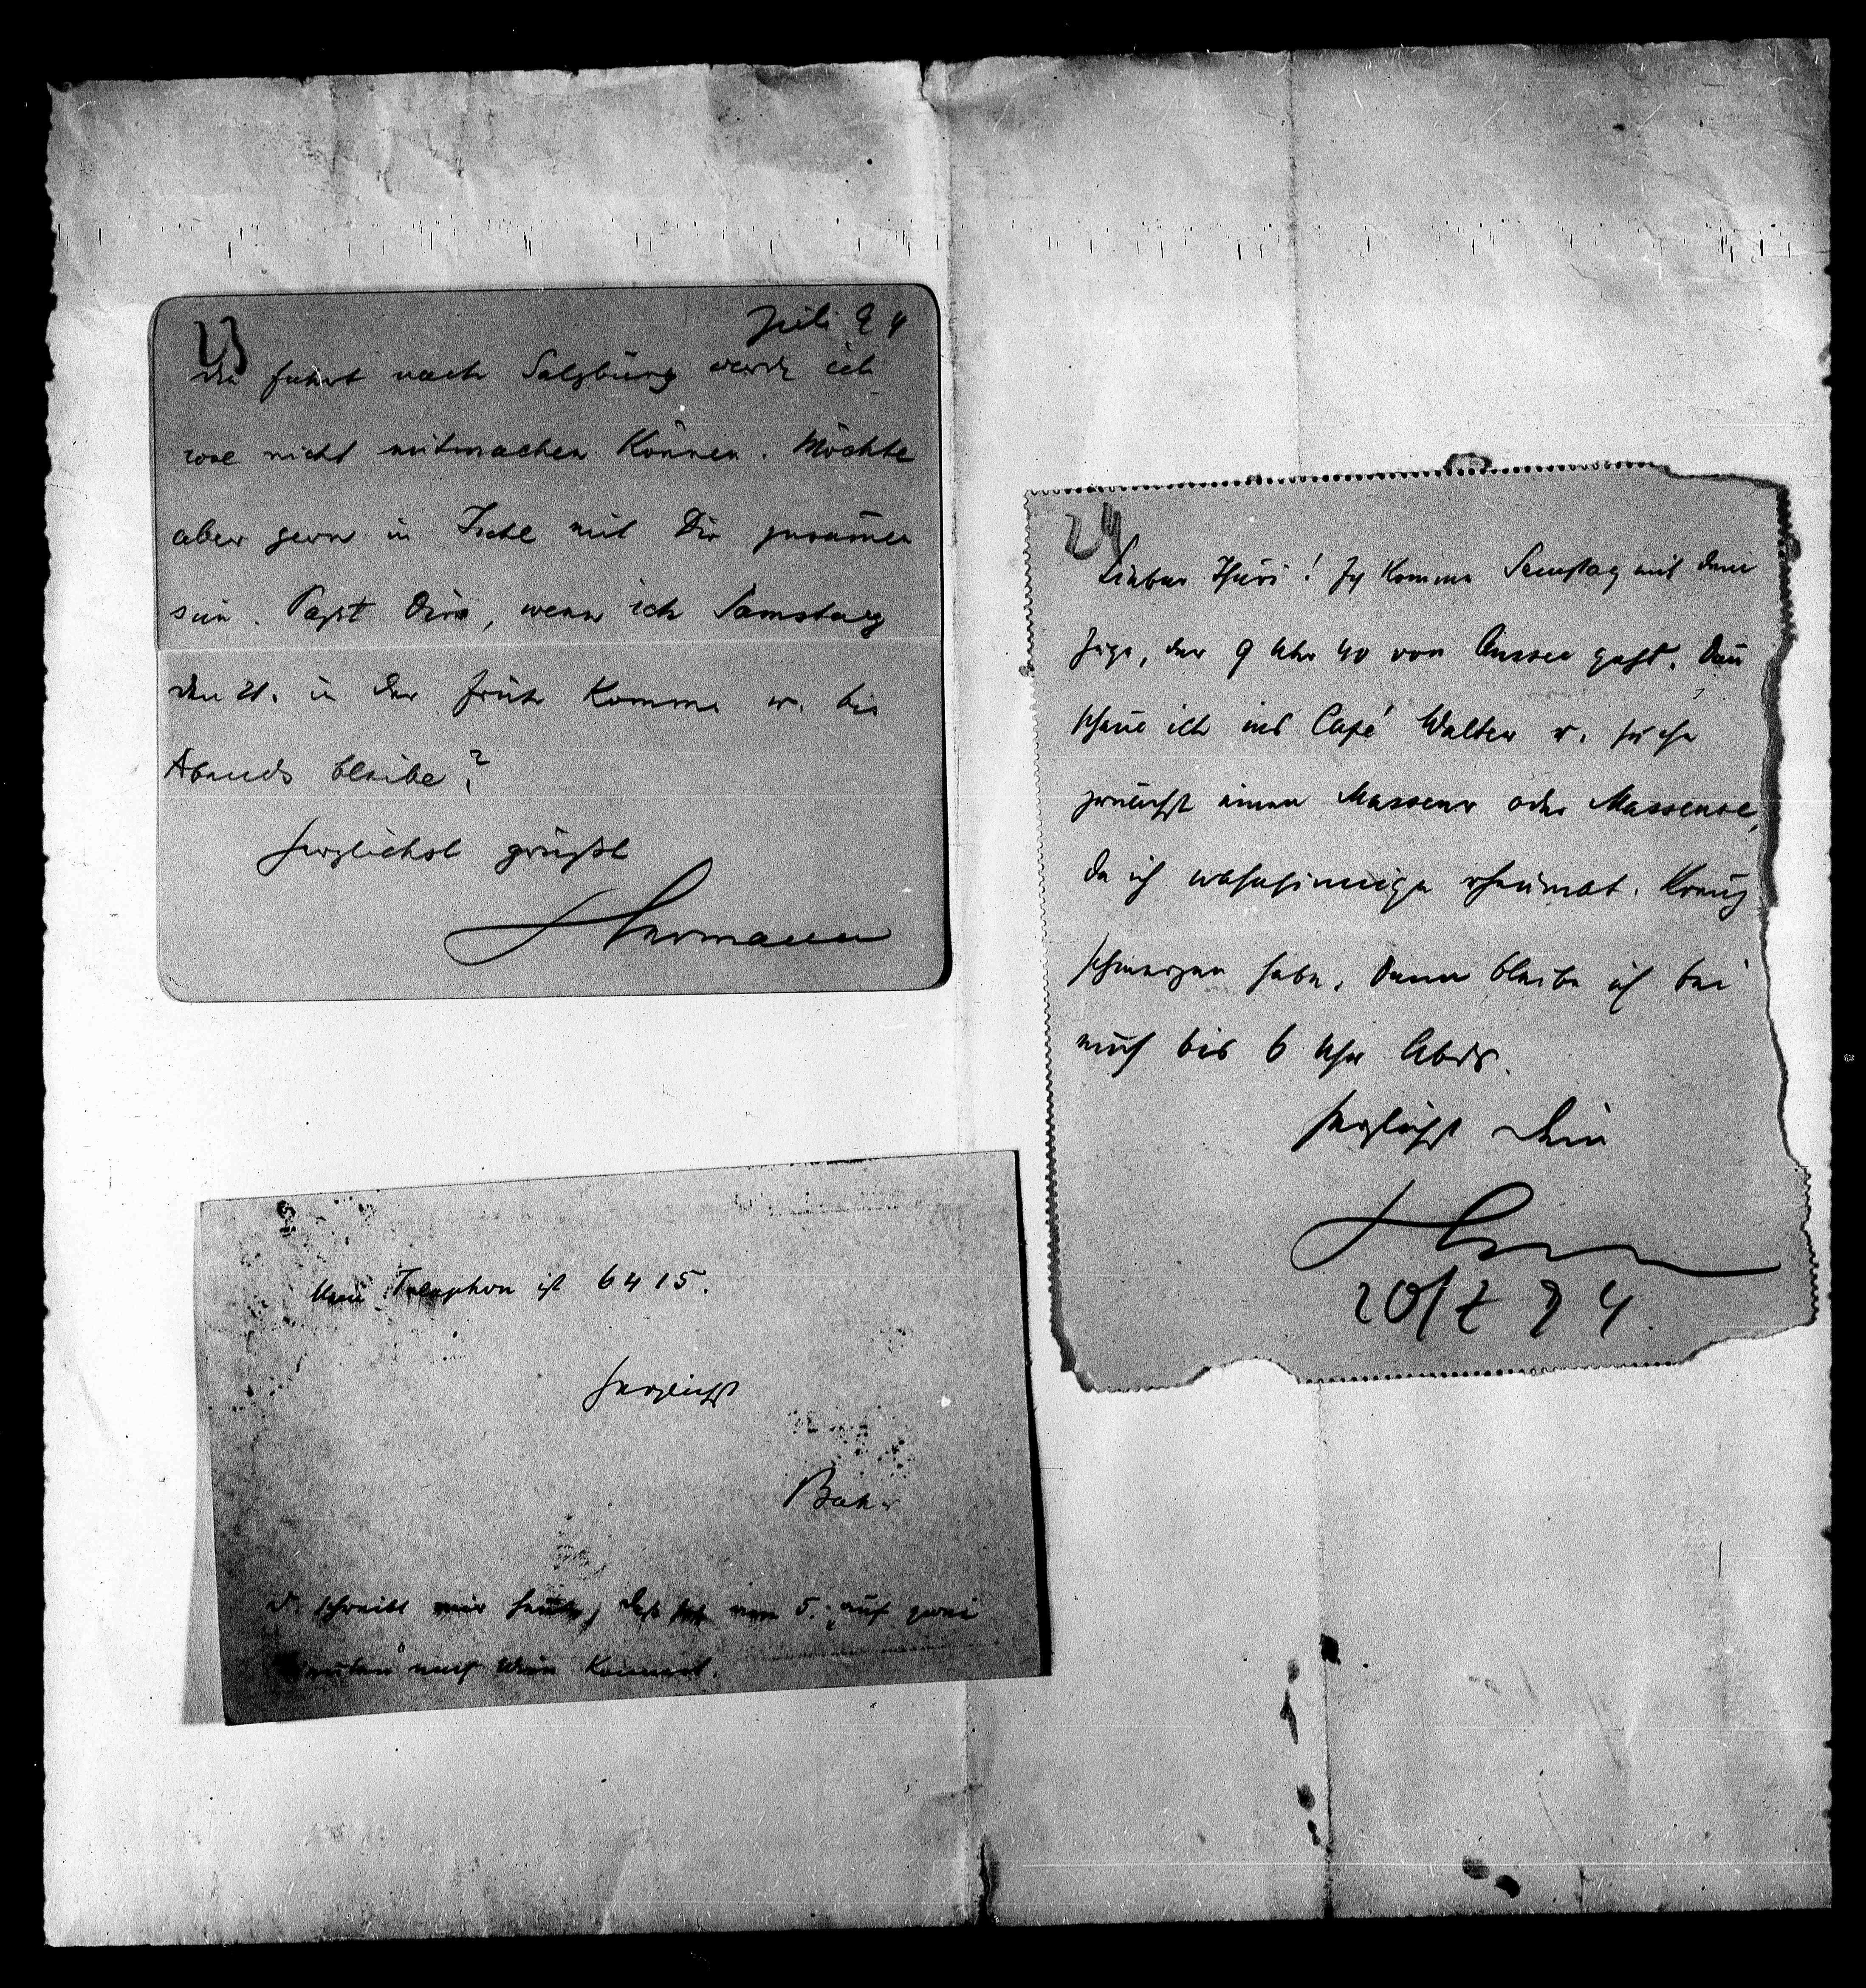 23
Juli 94
Die Fahrt nach Salzburg werde ich
wol nicht mitmachen können. Möchte
aber gern in Ischl mit Dir zusam̅en
sein. Paßt Dirs, wenn ich Samstag
den 21. in der Früh komme u. bis
Abends bleibe?
Herzlichst grüßt
Hermann
Mein Telephon ist 6415.
Herzlichst
Bahr
schreibt mir heute, daß vom 5. auf zwei
nach Wien kommt.
24
Lieber Thuri! Ich komme Samstag mit dem
Zuge, der 9 Uhr 40 von Aussee geht. Dan̅
schaue ich ins Café Walter u. suche
zunächst einen Masseur oder Masseuse,
da ich wahnsinnige rheumat. Kreuz
schmerzen habe. Dann bleibe ich bei
euch bis 6 Uhr Abds.
Herzlichst Dein
Herm
20/7 94